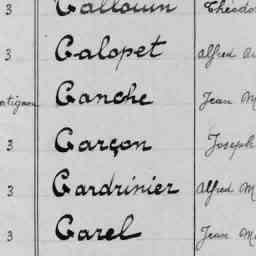 3 Gallouin Théodo
3 Galopet Alfred Au
artignon Ganche Jean M
3 Garçon Joseph
3 Gardrinier Alfred M
3 Garel Jean Ma